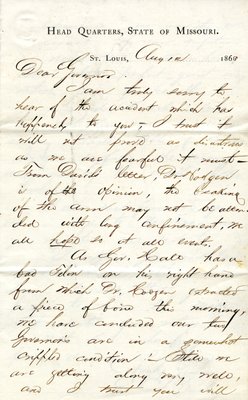 HEAD QUARTERS, STATE OF MISSOURI.
ST. LOUIS, Aug 1st 1861
Dear Governor.
I am truly sorry to
hear of the accident which has
happened to you; I trust it
will not prove as disastrous
as we are fearful it must -
From David's letter Dr. Hodgen
is of the opinion, the breaking
of the arm may not be atten
ded with long confinement, we
all hope so at all events.
As Gov. Hall has a
bad Felon on his right hand
from which Dr. extracted
a piece of bone this morning,
we have concluded our two
Governors are in a somewhat
crippled condition - Still we
are getting along very well
and I trust you will